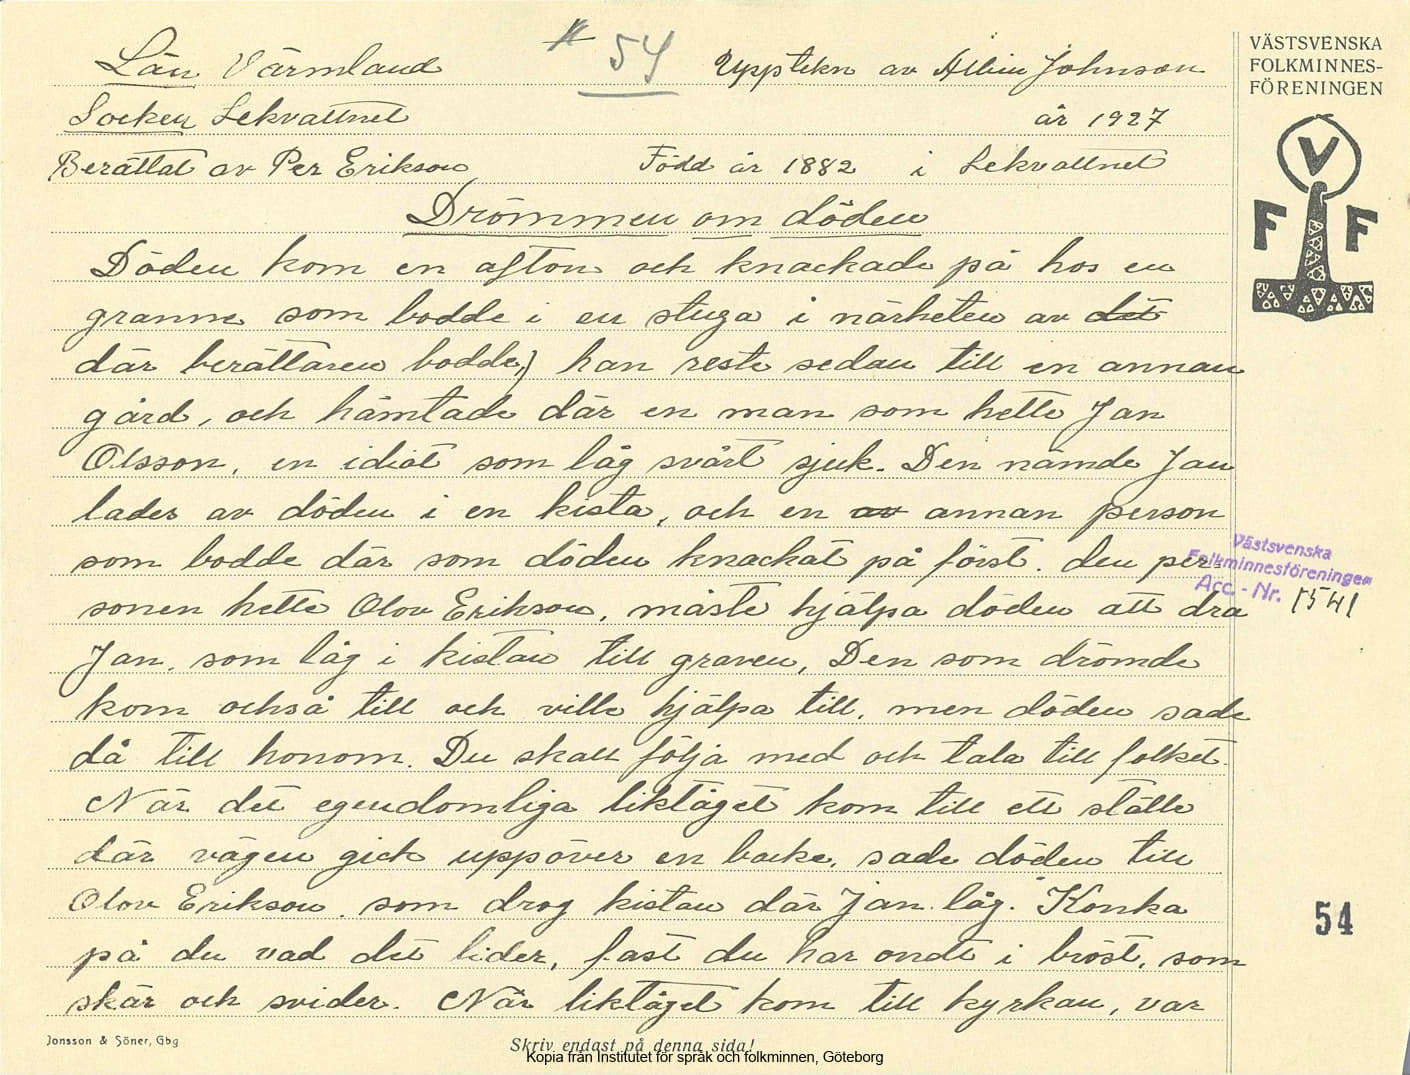 Län Värmland # 54 Upptekn av Albin Johnson
Socken Lekvattnet år 1927
Berättat av Per Erikson Född år 1882 i Lekvattnet
Drömmen om döden
Döden kom en afton och knackade på hos en
granne som bodde i en stuga i närheten av det
där berättaren bodde,) han reste sedan till en annan
gård, och hämtade där en man som hette Jan
Olsson, en idiot som låg svårt sjuk. Den nämde Jan
lades av döden i en kista, och en av annan person
som bodde där som döden knackat på först. den per-
sonen hette Olov Erikson, måste hjälpa döden att dra
Jan, som låg i kistan till graven, Den som drömde
kom också till och ville hjälpa till, men döden sade
då till honom. Du skall följa med och tala till folket.
När det egendomliga liktåget kom till ett ställe
där vägen gick uppöver en backe, sade döden till
Olov Erikson, som drog kistan där Jan låg. "Konka
på du vad det lider, fast du har ondt i bröst, som
skär och svider. När liktåget kom till kyrkan, var
VÄSTSVENSKA
FOLKMINNES-
FÖRENINGEN
V
F F
Västsvenska
Folkminnesföreningen
Acc. - Nr. 1541
54
Jonsson & Söner, Gbg
Skriv endast på denna sida!
Kopia från Institutet för språk och folkminnen, Göteborg